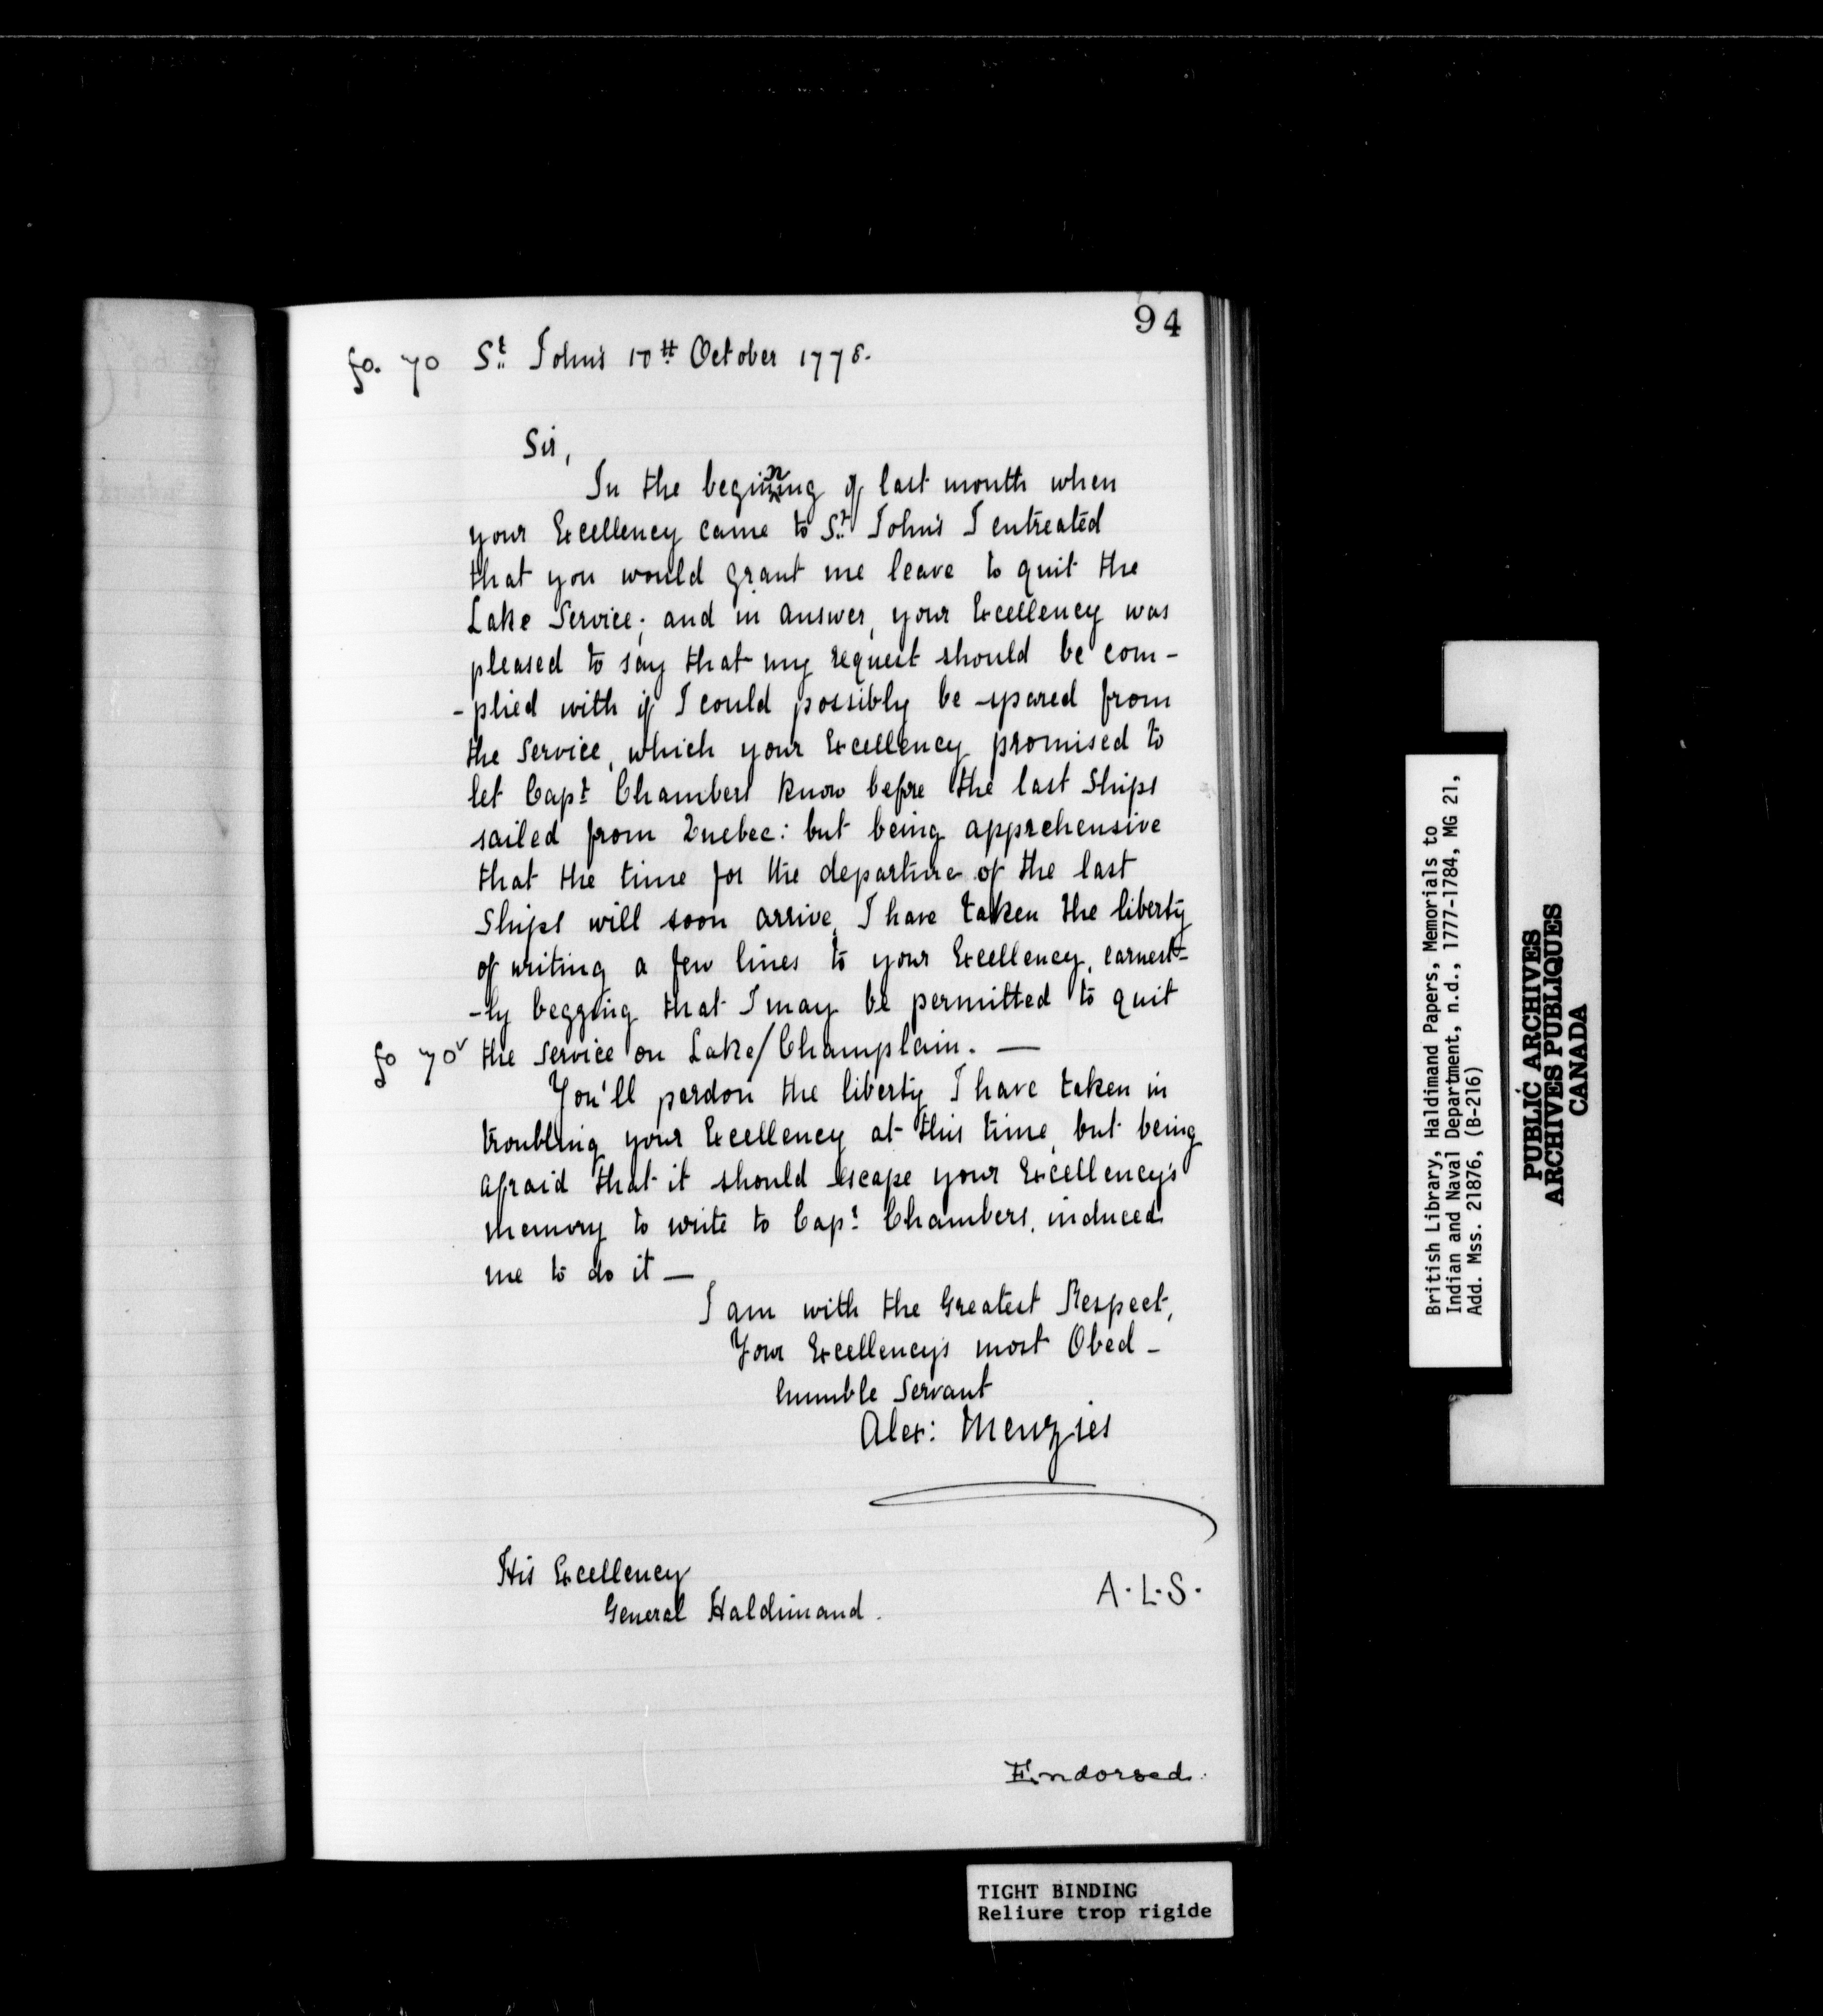 94
fo. 70 St. John's 10th October 1778.
Sir,
In the beginning of last month when
your Excellency came to St. John's I entreated
that you would grant me leave to quit the
Lake Service; and in answer, your Excellency was
pleased to say that my request should be com-
-plied with if I could possibly be spared from
the Service, which your Excellency promised to
let Capt. Chambers know before the last Ships
sailed from Quebec: but being apprehensive
that the time for the departure of the last
Ships will soon arrive, I have taken the liberty
of writing a few lines to your Excellency, earnest-
-ly begging that I may be permitted to quit
fo 70v the Service on Lake/Champlain. —
You'll pardon the liberty I have taken in
troubling your Excellency at this time, but being
afraid that it should escape your Excellency's
memory to write to Capt. Chambers, induced
me to do it —
I am with the Greatest Respect,
Your Excellency's most Obed -
humble Servant
Alex: Menzies
His Excellency
General Haldimand.
A.L.S.
Endorsed.
British Library, Haldimand Papers, Memorials to
Indian and Naval Department, n.d., 1777-1784, MG 21,
Add. Mss. 21876, (B-216)
PUBLIC ARCHIVES
ARCHIVES PUBLIQUES
CANADA
TIGHT BINDING
Reliure trop rigide